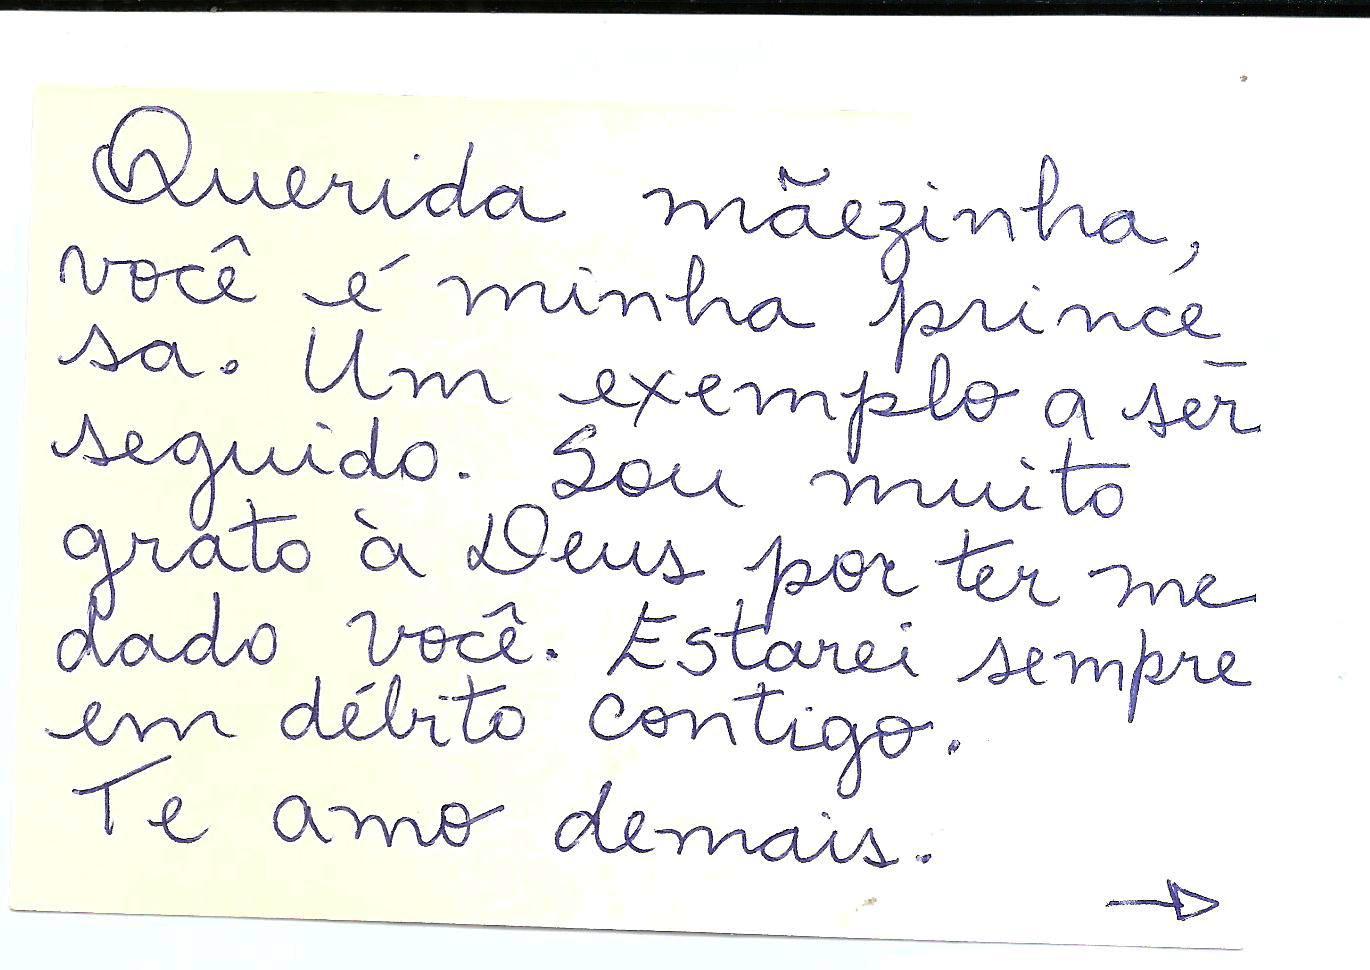 Querida mãezinha,
você é minha prince
sa. Um exemplo a ser
seguido. Sou muito
grato à Deus por ter me
dado você. Estarei sempre
em débito contigo.
Te amo demais.
→